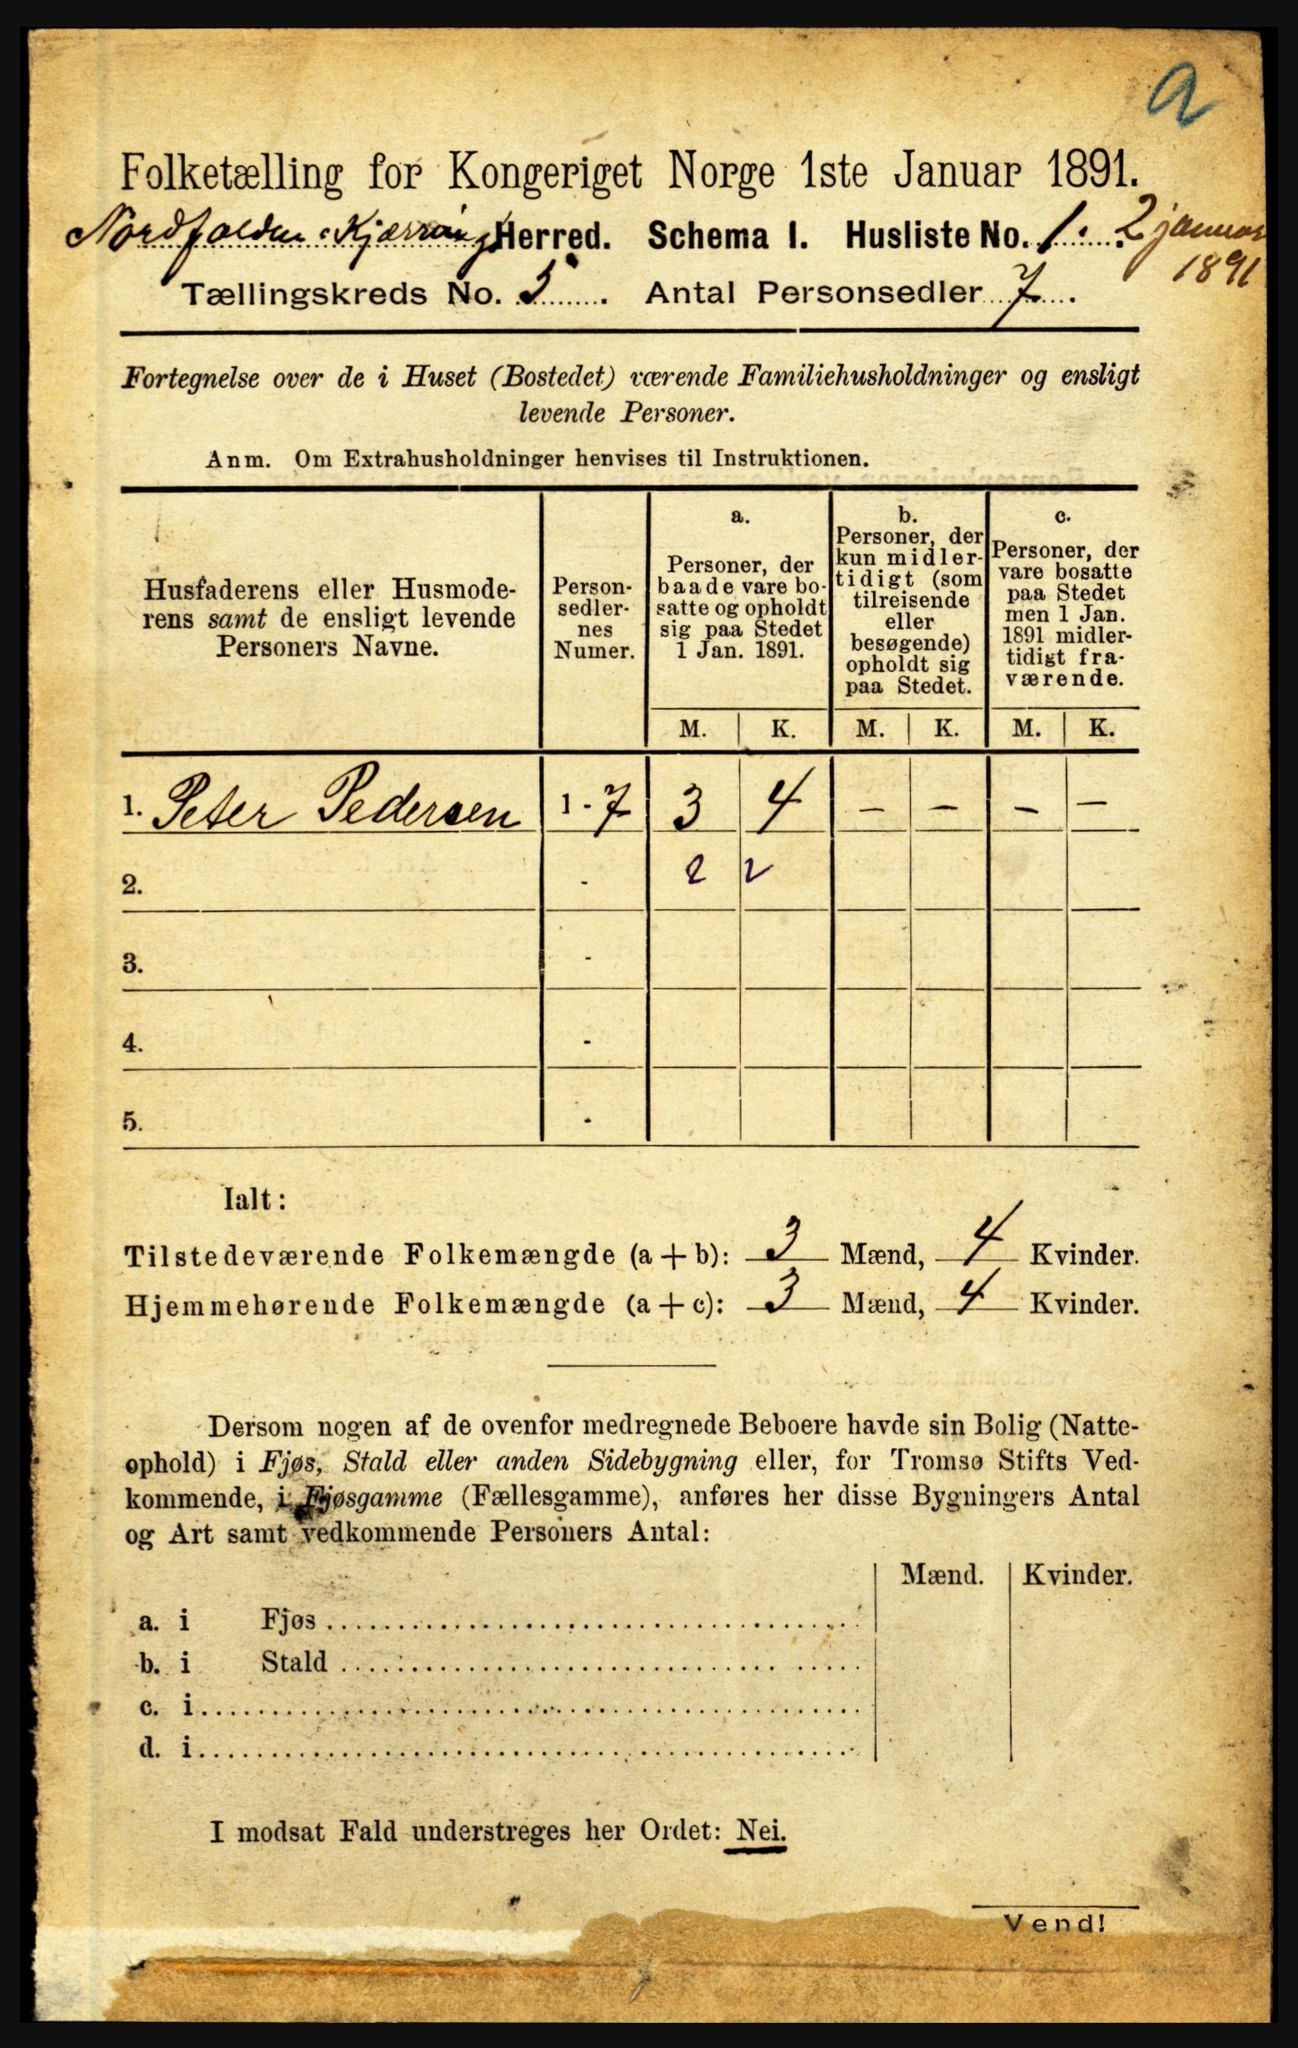 a
Folketælling for Kongeriget Norge 1ste Januar 1891.
Nordfolden-Kjærring Herred. Schema I. Husliste No. 1. 2 januar
1891
Tællingskreds No. 5. Antal Personsedler 7.
Fortegnelse over de i Huset (Bostedet) værende Familiehusholdninger og ensligt
levende Personer.
Anm. Om Extrahusholdninger henvises til Instruktionen.
Husfaderens eller Husmode-
rens samt de ensligt levende
Personers Navne.
Person-
sedler-
nes
Numer.
a.
Personer, der
baade vare bo-
satte og opholdt
sig paa Stedet
1 Jan. 1891.
b.
Personer, der
kun midler-
tidigt (som
tilreisende
eller
besøgende)
opholdt sig
paa Stedet.
c.
Personer, der
vare bosatte
paa Stedet
men 1 Jan.
1891 midler-
tidigt fra-
værende.
M. K. M. K. M. K.
1. Peter Pedersen 1 - 7 3 4 — — — —
2. - 2 2
3. -
4. -
5. -
Ialt:
Tilstedeværende Folkemængde (a + b): 3 Mænd, 4 Kvinder.
Hjemmehørende Folkemængde (a + c): 3 Mænd, 4 Kvinder.
Dersom nogen af de ovenfor medregnede Beboere havde sin Bolig (Natte-
ophold) i Fjøs, Stald eller anden Sidebygning eller, for Tromsø Stifts Ved-
kommende, i Fjøsgamme (Fællesgamme), anføres her disse Bygningers Antal
og Art samt vedkommende Personers Antal:
Mænd. Kvinder.
a. i Fjøs
b. i Stald
c. i
d. i
I modsat Fald understreges her Ordet: Nei.
Vend!